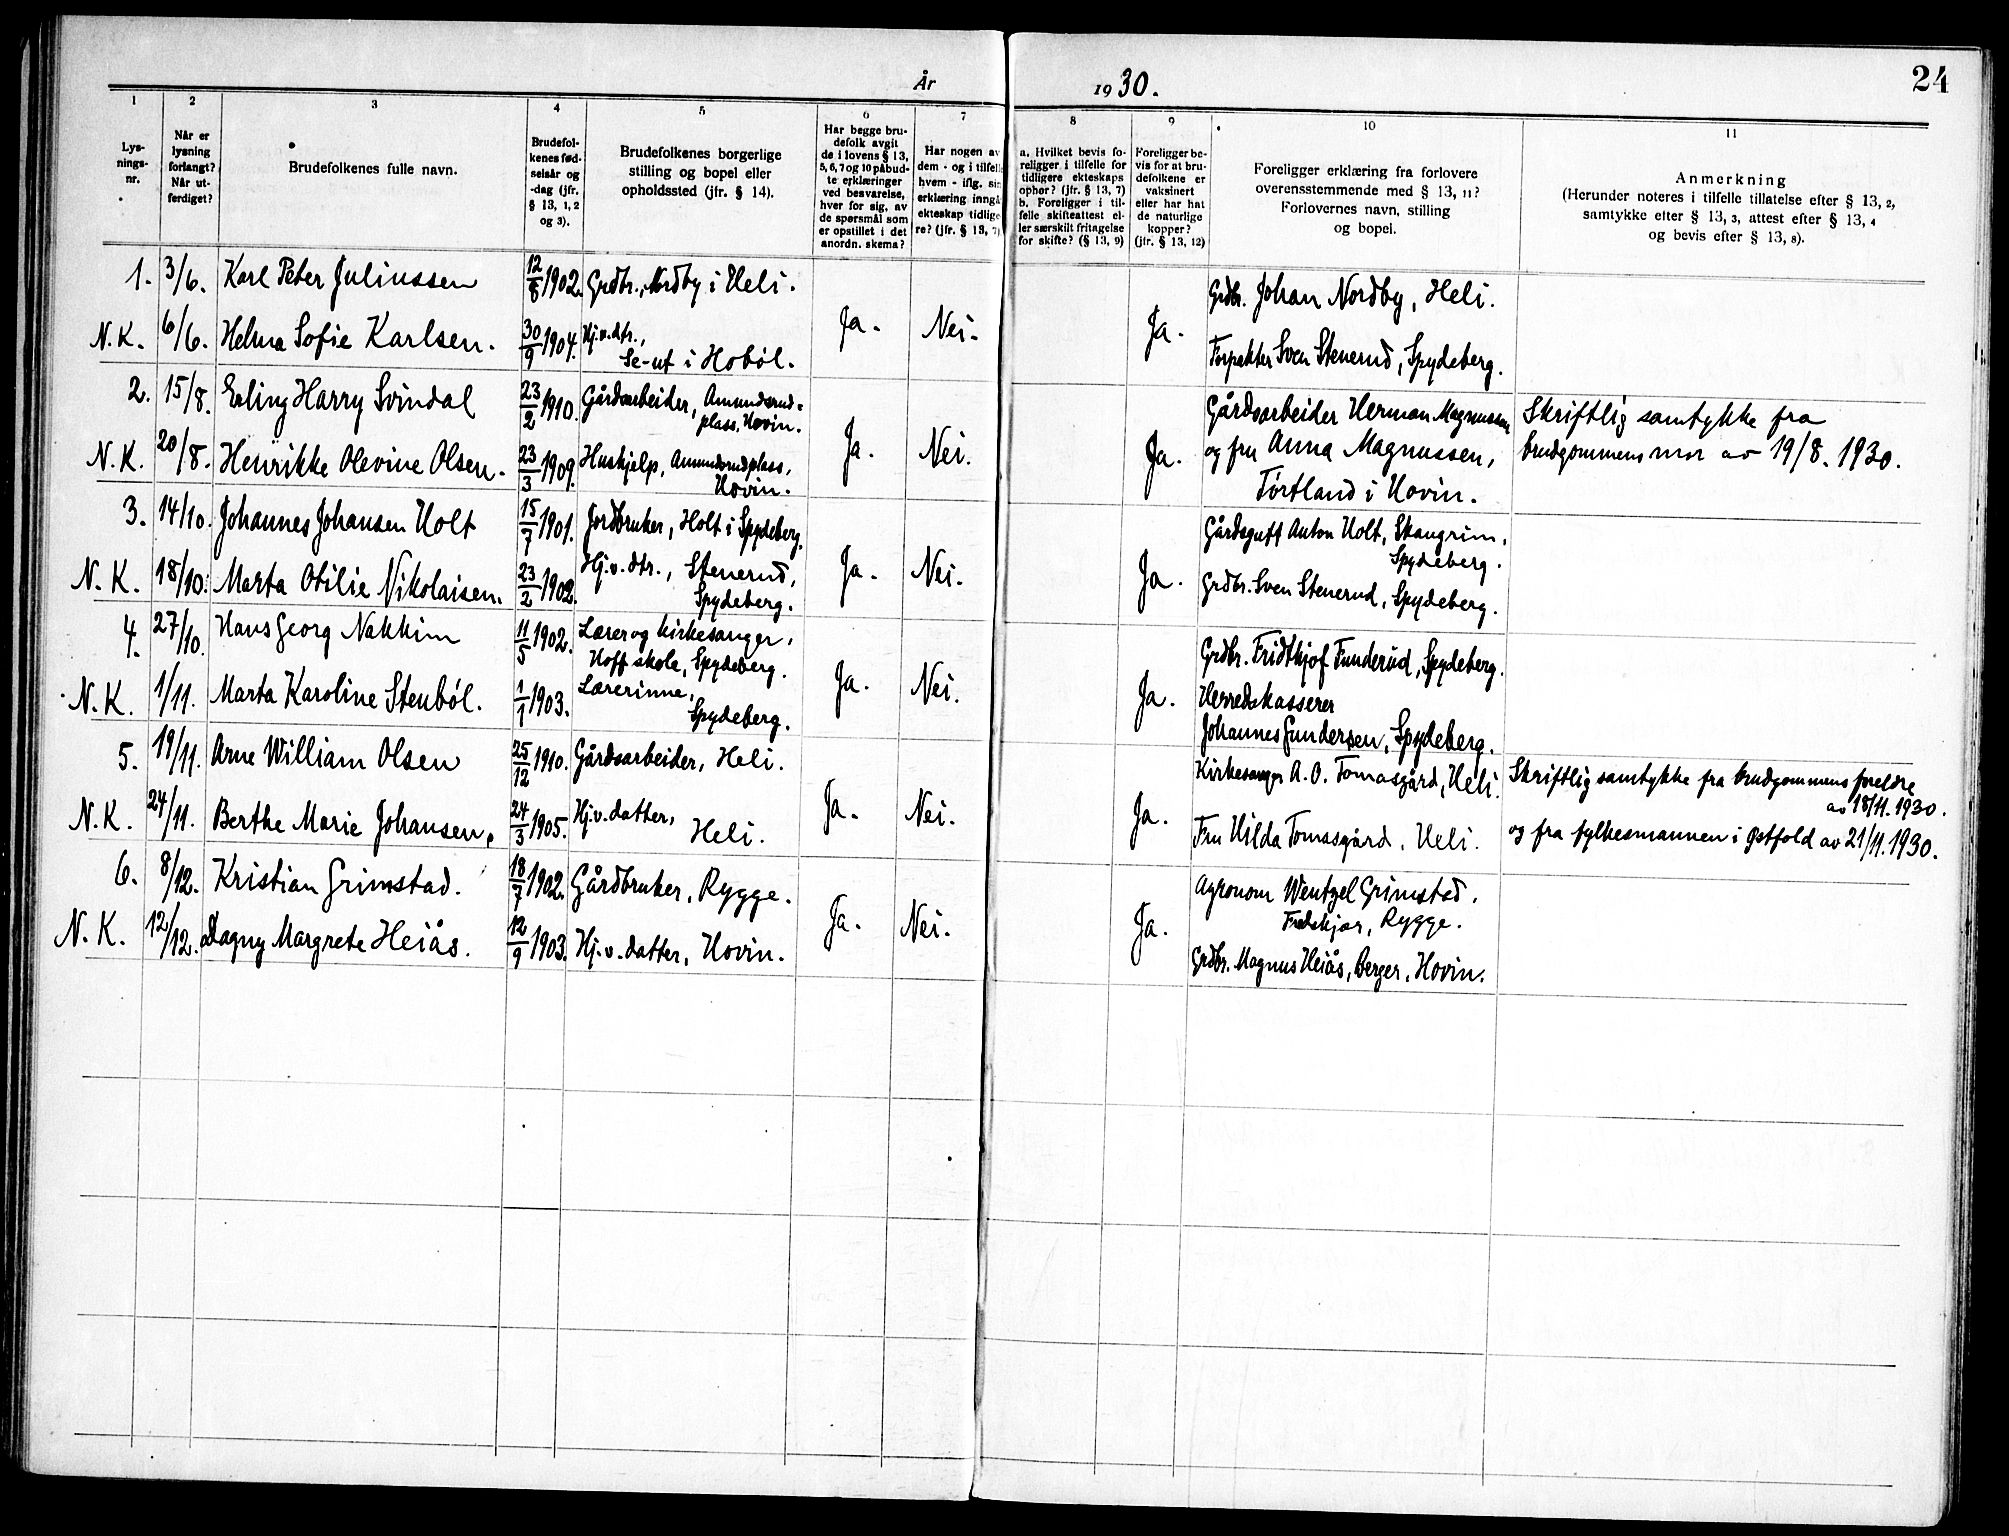 År 1930.
24
1
2
3
4
5
6
7
8
9
10
11
Lys-
nings-
nr.
Når er
lysning
forlangt?
Når ut-
ferdiget?
Brudefolkenes fulle navn.
Brudefol-
kenes fød-
selsår og
-dag (jfr.
§ 13, 1, 2
og 3).
Brudefolkenes borgerlige
stilling og bopel eller
opholdssted (jfr. § 14).
Har begge bru-
defolk avgit
de i lovens § 13,
5, 6, 7 og 10 påbud-
te erklæringer
ved besvarelse,
hver for sig, av
de spørsmål som
er opstillet i det
anordn. skema?
Har nogen av
dem - og i tilfelle
hvem - iflg. sin
erklæring inngå
ekteskap tidlige
re? (jfr. § 13, 7)
a. Hvilket bevis fo-
religger i tilfelle for
tidligere ekteskaps
ophør? (jfr. § 13, 7)
b. Foreligger i til-
felle skifteattest el-
ler særskilt fritagelse
for skifte? (§ 13, 9)
Foreligger be-
vis for at bru-
defolkene er
vaksinert
eller har hat
de naturlige
kopper?
(jfr. § 13, 12)
Foreligger erklæring fra forlovere
overensstemmende med § 13, 11?
Forlovernes navn, stilling
og bopel.
Anmerkning
(Herunder noteres i tilfelle tillatelse efter § 13, 2,
samtykke efter § 13, 3, attest efter § 13, 4
og bevis efter § 13, 8).
1. 3/6. Karl Peter Juliussen 12/8 1902. Grdbr., Nordby i Heli.
N.K. 6/6. Helma Sofie Karlsen. 30/9 1904. Hj.v.dtr.,
Se-ut i Hobøl.
Ja. Nei. Ja.
Grdbr. Johan Nordby, Heli.
Forpakter Sven Stenerud, Spydeberg.
2. 15/8. Erling Harry Svindal 23/2 1910. Gårdsarbeider, Amundsrud-
plass, Hovin.
N.K. 20/8. Henrikke Olevine Olsen. 23/3 1909. Huskjelp, Amundsrudplass,
Hovin.
Ja. Nei. Ja.
Gårdsarbeider Herman Magnussen
og fru Anna Magnussen,
Tørtland i Hovin.
Skriftlig samtykke fra
brudgommens mor av 19/8. 1930.
3. 14/10. Johannes Johansen Holt 15/7 1901. Jordbruker, Holt i Spydeberg.
N.K. 18/10. Marta Otilie Nikolaisen. 23/2 1902. Hj.v.dtr., Stenerud,
Spydeberg.
Ja. Nei. Ja.
Gårdsgutt Anton Holt, Skaugrim,
Spydeberg.
Grdbr. Sven Stenerud, Spydeberg.
4. 27/10. Hans Georg Nakkim 11/5 1902. Lærer og kirkesanger,
Hoff skole, Spydeberg.
N.K. 1/11. Marta Karoline Stenbøl. 1/1 1903. Lærerinne,
Spydeberg.
Ja. Nei. Ja.
Grdbr. Fridtkjof Funderud, Spydeberg.
Herredskasserer
Johannes Gundersen, Spydeberg.
5. 19/11. Arne William Olsen 25/12 1910. Gårdsarbeider, Heli.
N.K. 24/11. Berthe Marie Johansen. 24/3 1905. Hj.v.datter,
Heli.
Ja. Nei. Ja.
Kirkesanger A. O. Tomasgård, Heli.
Fru Hilda Tomasgård, Heli.
Skriftlig samtykke fra brudgommens foreldre
av 18/11. 1930.
og fra fylkesmannen i Østfold av 21/11. 1930.
6. 8/12. Kristian Grimstad. 18/7 1902. Gårdbruker, Rygge.
N.K. 12/12. Dagny Margrete Heiås. 12/9 1903. Hj.v.datter, Hovin.
Ja. Nei. Ja.
Agronom Wentzel Grimstad.
Fredskjær, Rygge.
Grdbr. Magnus Heiås, Berger, Hovin.